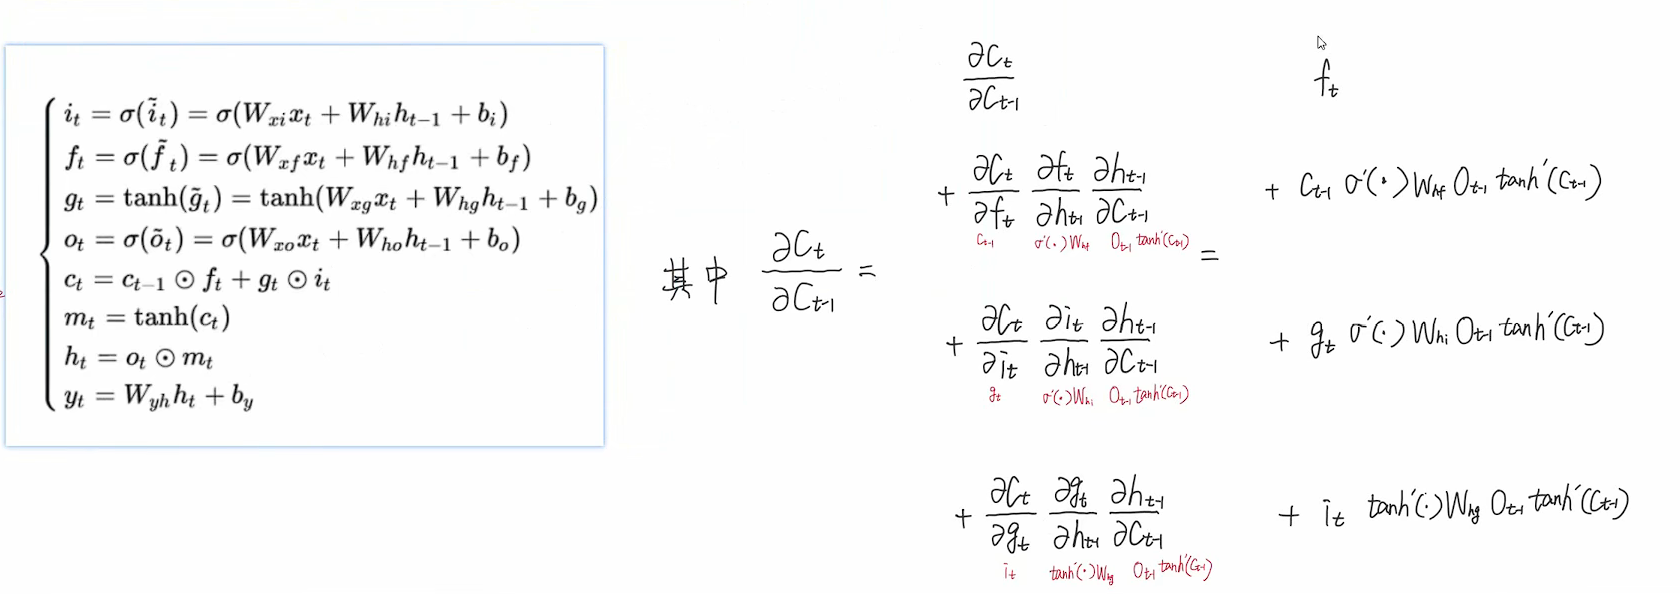 i_t = σ(ĩ_t) = σ(W_{xi}x_t + W_{hi}h_{t−1} + b_i)
f_t = σ(f̃_t) = σ(W_{xf}x_t + W_{hf}h_{t−1} + b_f)
g_t = tanh(g̃_t) = tanh(W_{xg}x_t + W_{hg}h_{t−1} + b_g)
o_t = σ(õ_t) = σ(W_{xo}x_t + W_{ho}h_{t−1} + b_o)
c_t = c_{t−1} ⊙ f_t + g_t ⊙ i_t
m_t = tanh(c_t)
h_t = o_t ⊙ m_t
y_t = W_{yh}h_t + b_y
其中 ∂C_t/∂C_{t-1} =
∂C_t/∂C_{t-1}
+ ∂C_t/∂f_t ∂f_t/∂h_{t-1} ∂h_{t-1}/∂C_{t-1}
C_{t-1} σ'(·)W_{hf} O_{t-1} tanh'(C_{t-1})
+ ∂C_t/∂i_t ∂i_t/∂h_{t-1} ∂h_{t-1}/∂C_{t-1}
g_t σ'(·)W_{hi} O_{t-1} tanh'(C_{t-1})
+ ∂C_t/∂g_t ∂g_t/∂h_{t-1} ∂h_{t-1}/∂C_{t-1}
i_t tanh'(·)W_{hg} O_{t-1} tanh'(C_{t-1})
=
f_t
+ C_{t-1} σ'(·)W_{hf} O_{t-1} tanh'(C_{t-1})
+ g_t σ'(·) W_{hi} O_{t-1} tanh'(C_{t-1})
+ i_t tanh'(·)W_{hg} O_{t-1} tanh'(C_{t-1})